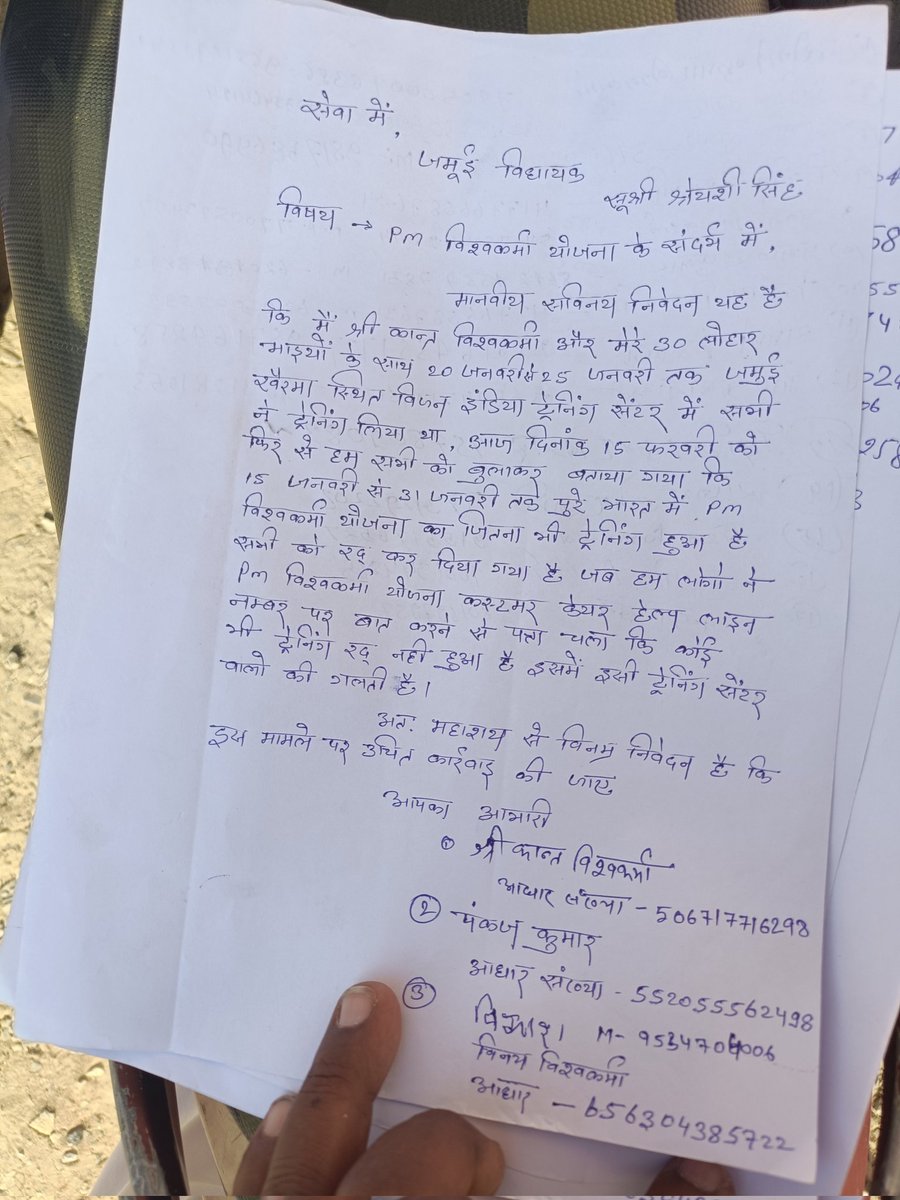 सेवा में,
जमूई विधायक
सूश्री श्रेयशी सिंह
विषय → Pm विश्वकर्मा योजना के संदर्भ में,
मानवीय सविनय निवेदन यह है
कि मैं श्री कान्त विश्वकर्मा और मेरे 30 लोहार
भाइयों के साथ 20 जनवरी से 25 जनवरी तक जमुई
खैरमा स्थित विजन इंडिया ट्रेनिंग सेंटर में सभी
ने ट्रेनिंग लिया था, आज दिनांक 15 फरवरी को
फिर से हम सभी को बुलाकर बताया गया कि
15 जनवरी से 31 जनवरी तक पुरे भारत में Pm
विश्वकर्मा योजना का जितना भी ट्रेनिंग हुआ है
सभी को रद्द कर दिया गया है जब हम लोगो ने
Pm विश्वकर्मा योजना कस्टमर केयर हेल्प लाइन
नम्बर पर बात करने से पता चला कि कोई
भी ट्रेनिंग रद्द नही हुआ है इसमें इसी ट्रेनिंग सेंटर
वालो की गलती है।
अत: महाशय से विनम्र निवेदन है कि
इस मामले पर उचित कार्रवाइ की जाए
आपका आभारी
① श्री कान्त विश्वकर्मा
आधार संख्या - 506717716298
② पंकज कुमार
आधार संख्या - 552055562498
③
M- 9534704006
विनय विश्वकर्मा
आधार - 656304385722
7
58
55
258
3